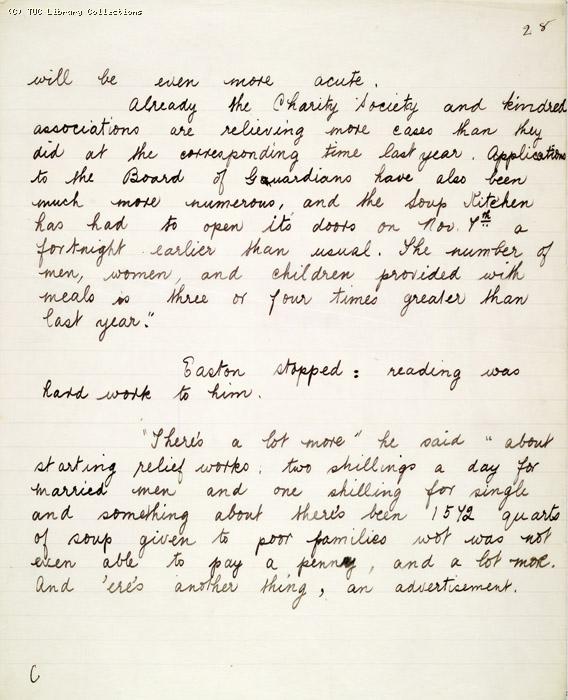 (c) TUC Library Collections
28
will be even more acute.
Already the Charity Society and kindred
associations are relieving more cases than they
did at the corresponding time last year. Applications
to the Board of Guardians have also been
much more numerous, and the Soup Kitchen
has had to open its doors on Nov. 7th a
fortnight earlier than usual. The number of
men, women, and children provided with
meals is three or four times greater than
last year."
Easton stopped: reading was
hard work to him.
"There's a lot more" he said "about
starting relief works. two shillings a day for
married men and one shilling for single
and something about there's been 1572 quarts
of soup given to poor families wot was not
even able to pay a penny, and a lot more.
And 'ere's another thing, an advertisement.
C